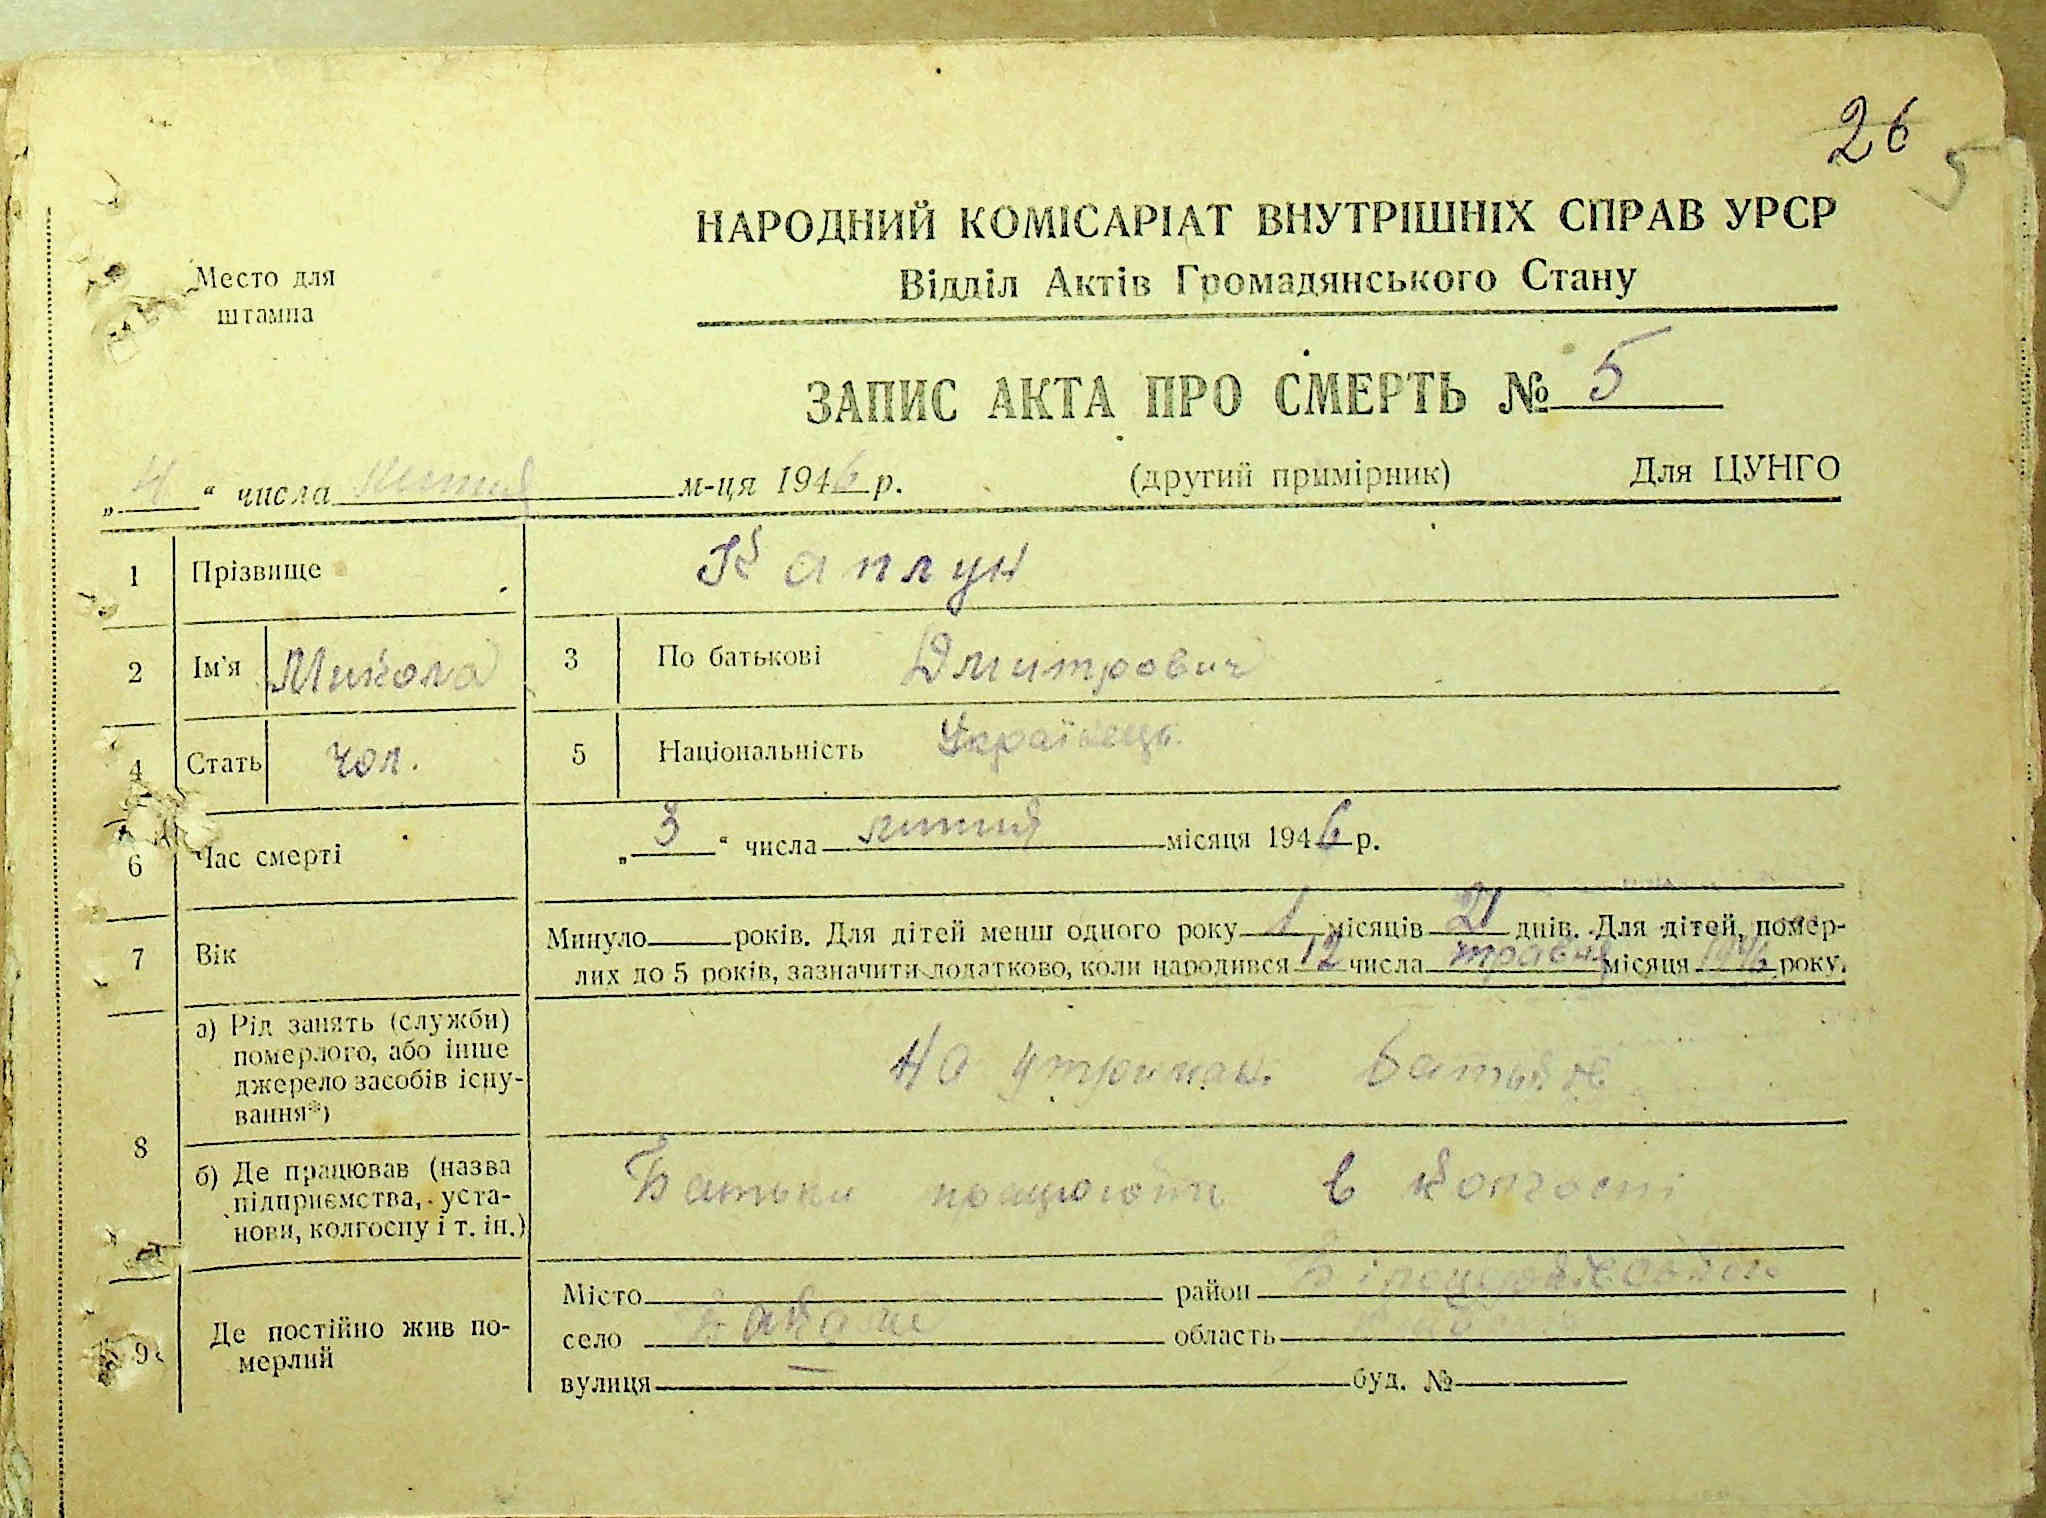 26
5
НАРОДНИЙ КОМІСАРІАТ ВНУТРІШНІХ СПРАВ УРСР
Відділ Актів Громадянського Стану
Место для
штампа
ЗАПИС АКТА ПРО СМЕРТЬ № 5
„4“ числа лютий м-ця 1946 р. (другий примірник) Для ЦУНГО
1 Прізвище Каплун
2 Ім'я Микола 3 По батькові Дмитрович
4 Стать чол. 5 Національність Українець
6 Час смерті „3“ числа лютий місяця 1946 р.
7 Вік Минуло років. Для дітей менш одного року 1 місяців 21 днів. Для дітей, помер-
лих до 5 років, зазначити додатково, коли народився 12 числа травня місяця 1946 року.
8 а) Рід занять (служби)
померлого, або інше
джерело засобів існу-
вання*)
На утриман. батьків
б) Де працював (назва
підприємства, уста-
нови, колгоспу і т. ін.)
Батьки працюють в колгоспі
9 Де постійно жив по-
мерлий
Місто район Білоцерківський
село область
вулиця — буд. №